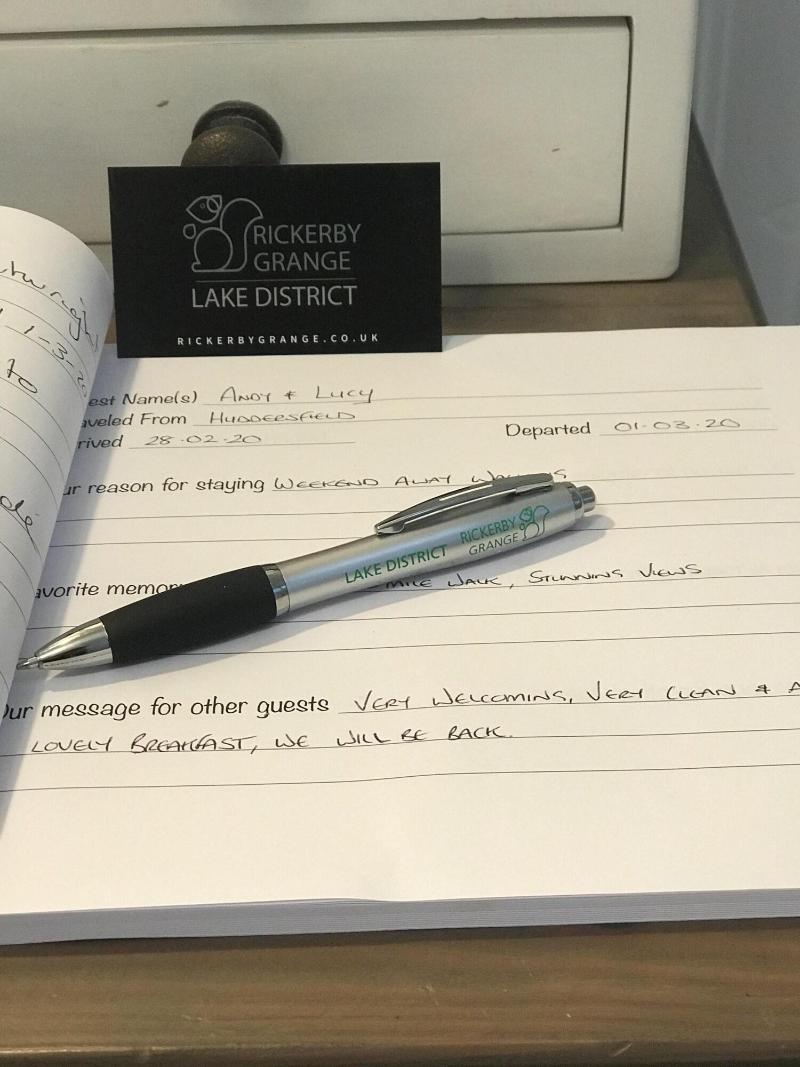 RICKERBY
GRANGE
LAKE DISTRICT
RICKERBYGRANGE.CO.UK
twright
1-3-20
to
de
est Name(s) ANDY & LUCY
aveled From HUDDERSFIELD
rived 28.02.20 Departed 01.03.20
ur reason for staying WEEKEND AWAY
LAKE DISTRICT RICKERBY
GRANGE
avorite memor MILE WALK, STUNNING VIEWS
Our message for other guests VERY WELCOMING, VERY CLEAN & A
LOVELY BREAKFAST, WE WILL BE BACK.